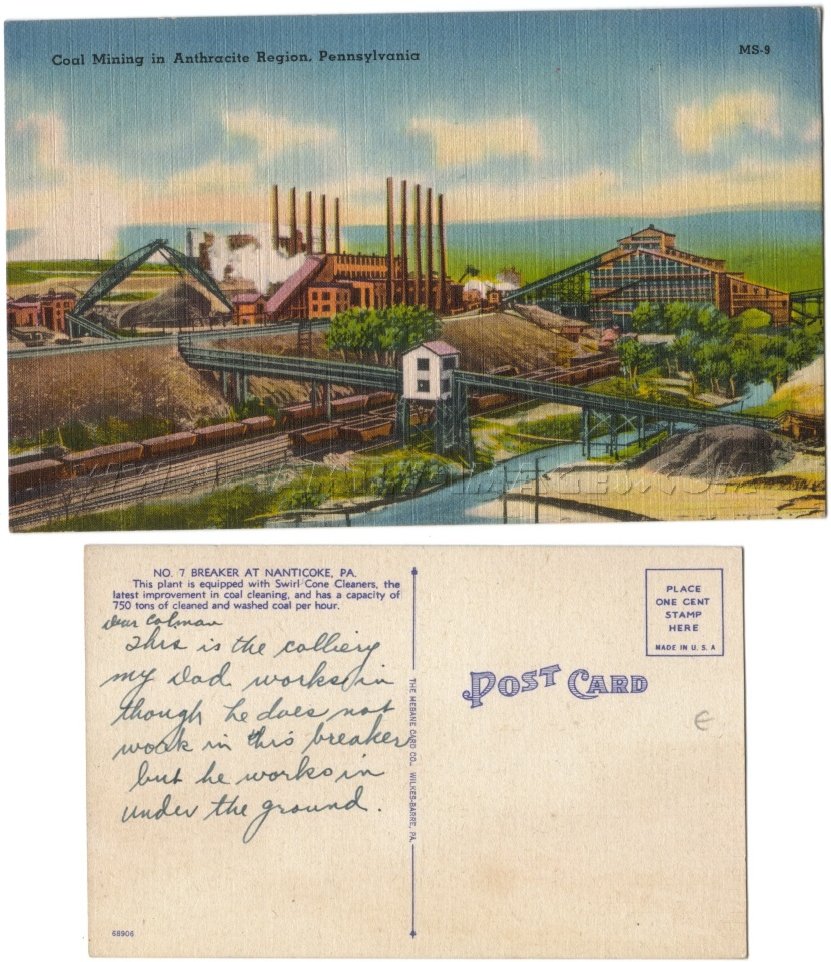 Coal Mining in Anthracite Region, Pennsylvania
MS-9
NO. 7 BREAKER AT NANTICOKE, PA.
This plant is equipped with Swirl Cone Cleaners, the
latest improvement in coal cleaning, and has a capacity of
750 tons of cleaned and washed coal per hour.
Dear Colman
This is the colliery
my Dad works in
though he does not
work in this breaker
but he works in
under the ground.
THE MEBANE CARD CO., WILKES-BARRE, PA.
PLACE
ONE CENT
STAMP
HERE
MADE IN U. S. A
POST CARD
€
68906